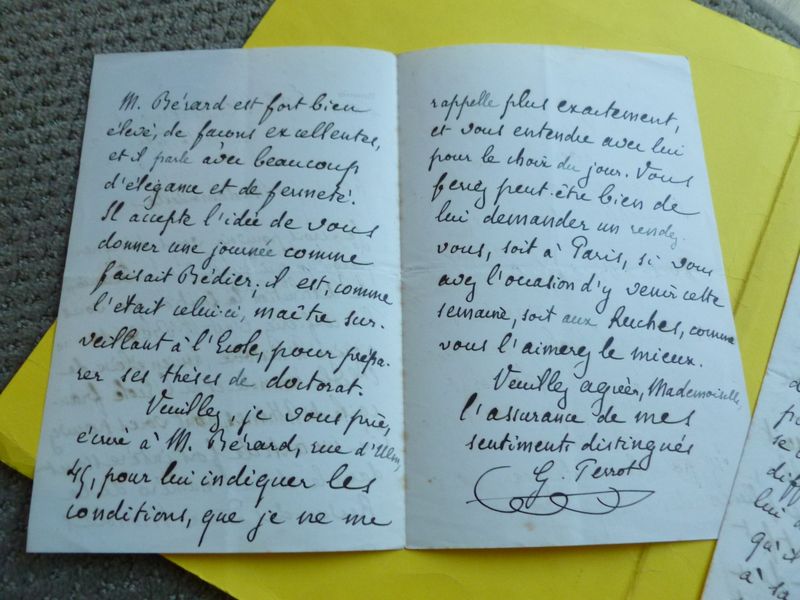 M. Bérard est fort bien
élevé, de façons excellentes,
et il parle avec beaucoup
d'élégance et de fermeté.
Il accepte l'idée de vous
donner une journée comme
faisait Bédier; il est, comme
l'était celui-ci, maître sur-
veillant à l'Ecole, pour prépa-
rer ses thèses de doctorat.
Veuillez, je vous prie,
écrire à M. Bérard, rue d'Ulm,
45, pour lui indiquer les
conditions, que je ne me
rappelle plus exactement,
et vous entendre avec lui
pour le choix du jour. Vous
ferez peut-être bien de
lui demander un rendez-
vous, soit à Paris, si vous
avez l'occasion d'y venir cette
semaine, soit aux Ruches, comme
vous l'aimerez le mieux.
Veuillez agréer, Mademoiselle,
l'assurance de mes
sentiments distingués
G. Perrot
se
diff
lui
qu'il
à sa